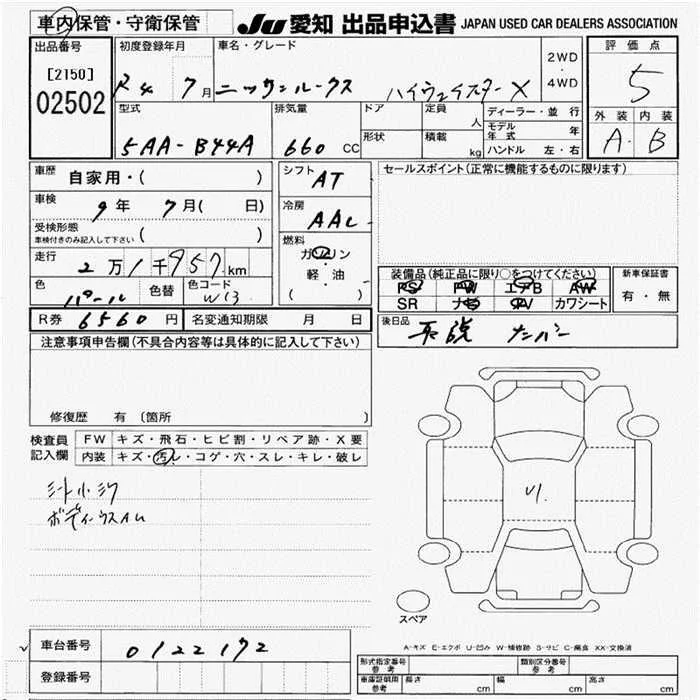 車内保管・守衛保管 JU 愛知 出品申込書 JAPAN USED CAR DEALERS ASSOCIATION
出品番号 [2150] 02502
初度登録年月 R4 7月
車名・グレード ニッサンルークス ハイウェイスターX
2WD ・ 4WD
評価点 5
外装 内装
A・B
型式 5AA-B44A
排気量 660 CC
ドア 形状
定員 人
積載 kg
ディーラー・並行
モデル年式 年
ハンドル 左・右
車歴 自家用・( )
車検 9年 7月( 日)
受検形態
車検付きのみ記入して下さい
走行 2万1千957km
色 パール 色替 色コード W13
シフト AT
冷房 AAC
燃料 ガソリン
軽・油
( )
セールスポイント(正常に機能するものに限ります)
装備品(純正品に限り○をつけてください)
PS PW エアB AW
SR ナビ TV カワシート
新車保証書 有・無
後日品 取説 ナンバー
R券 6560円 名変通知期限 月 日
注意事項申告欄(不具合内容等は具体的に記入して下さい)
修復歴 有 〔箇所
検査員記入欄
FW キズ・飛石・ヒビ割・リペア跡・X要
内装 キズ・汚レ・コゲ・穴・スレ・キレ・破レ
シート小シワ
ボディーウスAU
U1.
スペア
A-キズ E-エクボ U-凹み W-補修跡 S-サビ C-腐食 XX-交換済
車台番号 0122172
登録番号
形式指定番号 参考 類別区分番号 参考
車庫証明用 参考 長さ cm 幅 cm 高さ cm